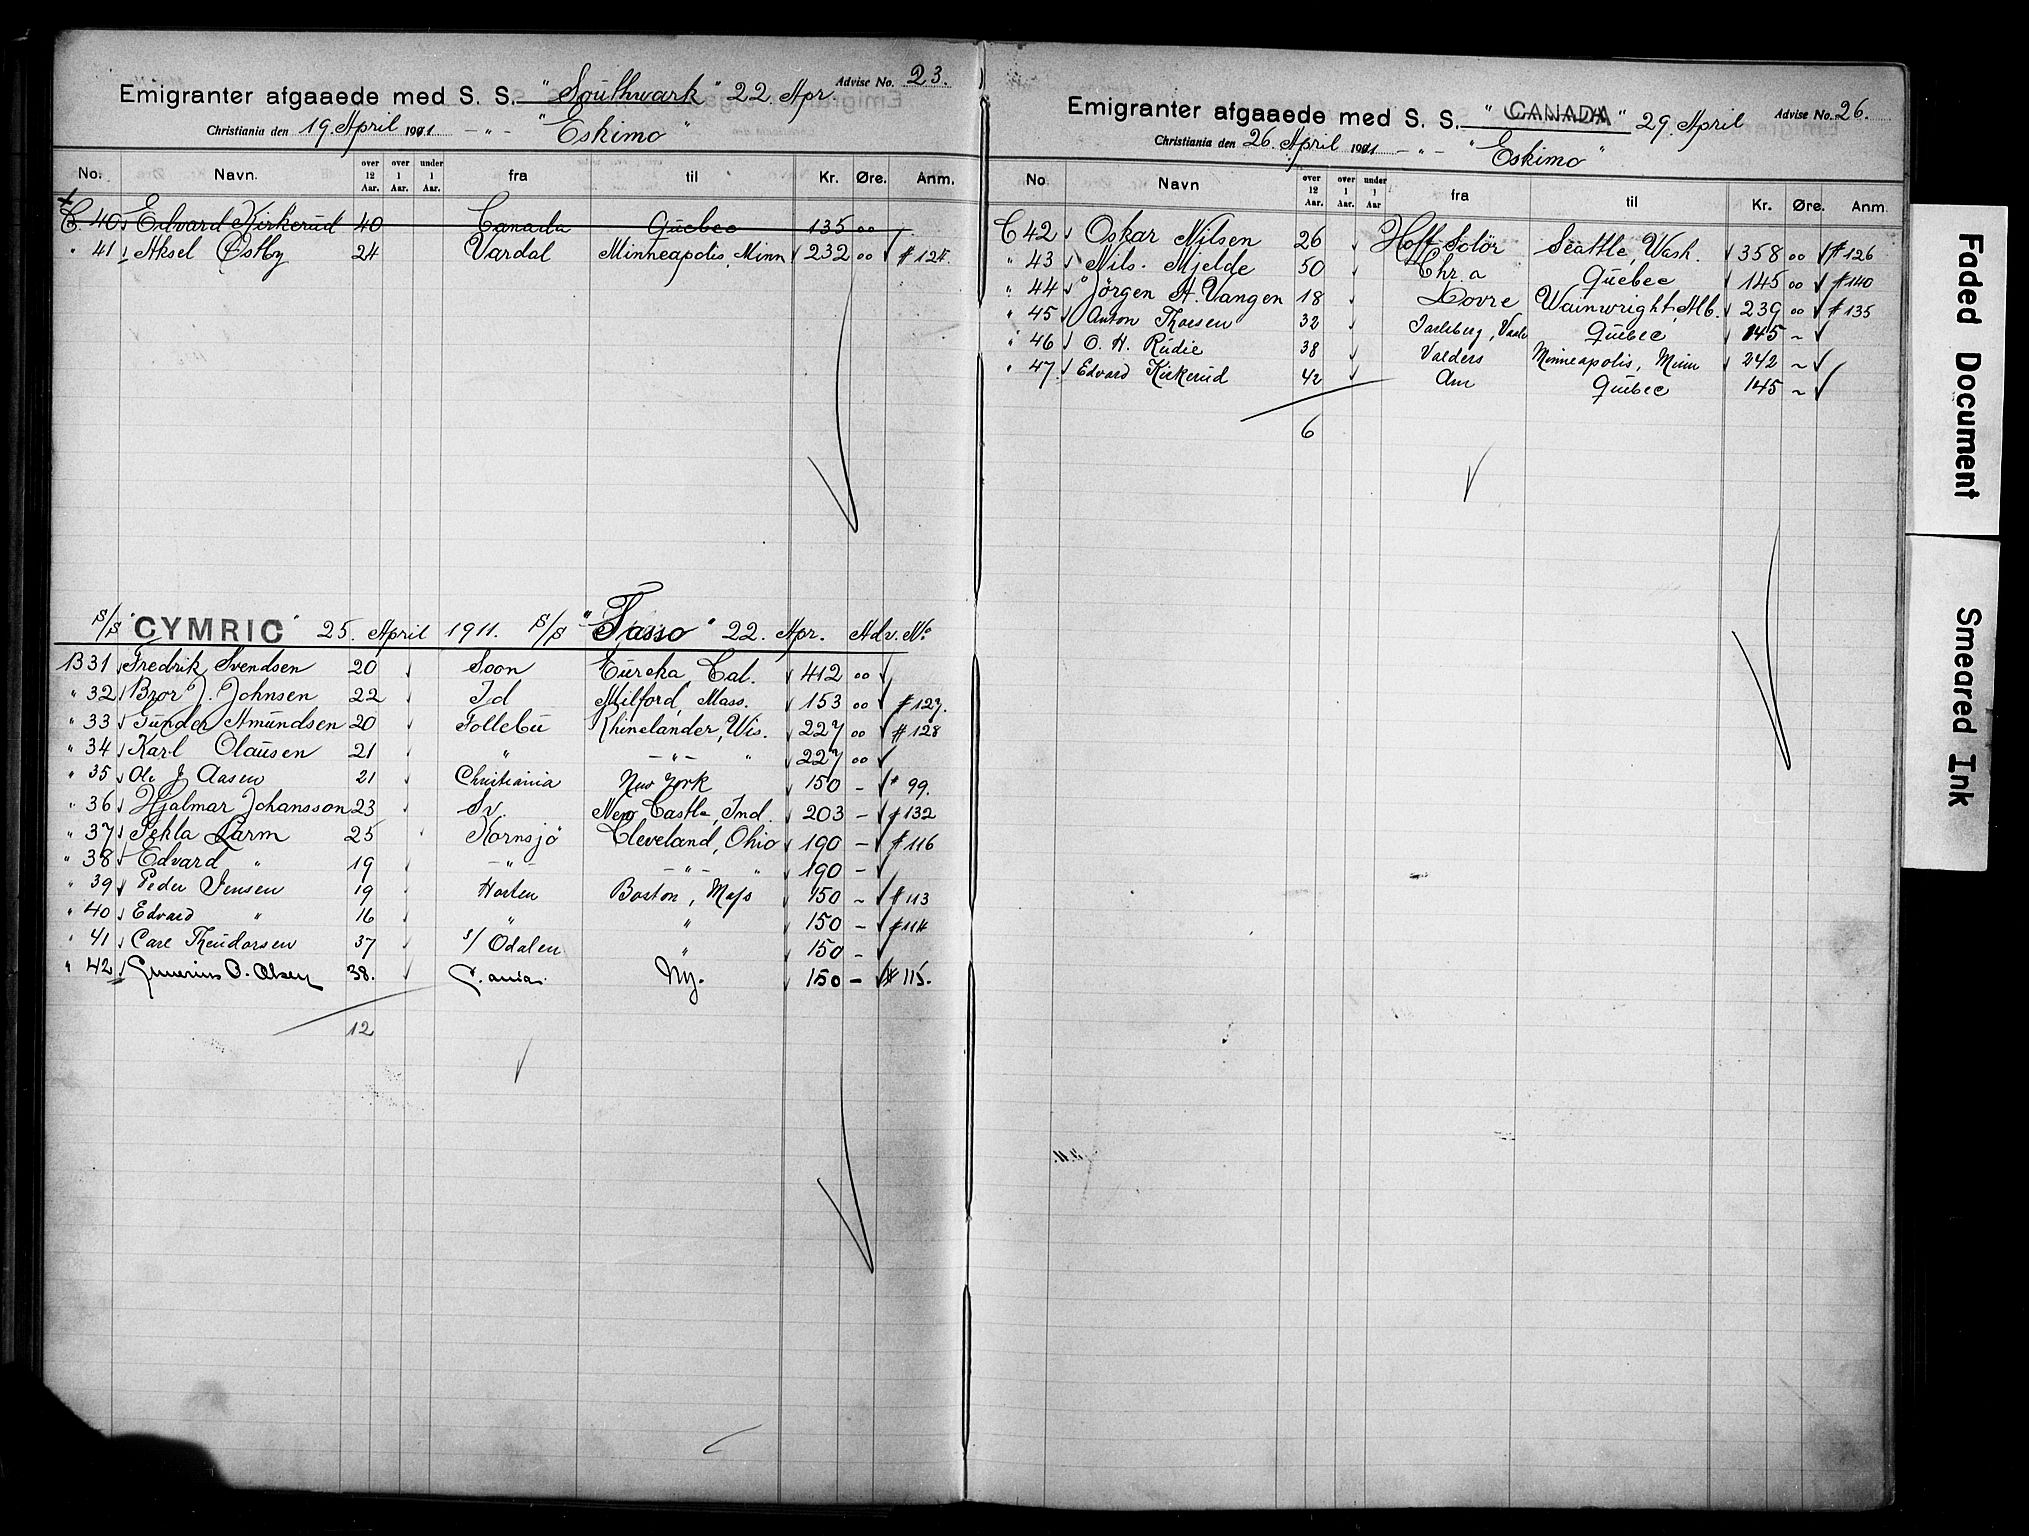 Emigranter afgaaede med S. S. "Southwark" 22. Apr. Advise No. 23.
Christiania den 19. April 1911 -"- "Eskimo"
No. Navn. over 12 Aar. over 1 Aar. under 1 Aar. fra til Kr. Øre. Anm.
C. 40 Edvard Kirkerud 40 Canada Quebec 135 00
" 41 Aksel Østby 24 Vardal Minneapolis, Minn 232 00 # 124.
S/S "CYMRIC" 25. April 1911. S/S "Tasso" 22. Apr. Adv. No
B 31 Fredrik Svendsen 20 Soon Eureka Cal. 412 00
" 32 Bror J. Johnsen 22 Id Milford, Mass. 153 00 # 127.
" 33 Gunder Amundsen 20 Follebu Rhinelander, Wis. 227 00 # 128
" 34 Karl Olausen 21 " -"- " 227 00
" 35 Ole J Aasen 21 Christiania New York 150 - # 99.
" 36 Hjalmar Johansson 23 Sv. New Castle, Ind. 203 - # 132
" 37 Tekla Larm 25 Kornsjö Cleveland, Ohio 190 - # 116
" 38 Edvard " 19 -"- -"- " 190 -
" 39 Peder Jensen 19 Horten Boston, Mass 150 - # 113
" 40 Edvard " 16 " " 150 - # 114
" 41 Carl Theudorsen 37 S/ Odalen " 150 -
" 42 Gunerius O. Olsen 38. C.ania. NY. 150 - # 115.
12
Emigranter afgaaede med S. S. "CANADA" 29. April Advise No. 26.
Christiania den 26. April 1911 -"- "Eskimo"
No. Navn over 12 Aar. over 1 Aar. under 1 Aar fra til Kr. Øre. Anm.
C 42 Oskar Nilsen 26 Hoff Solör Seattle, Wash. 358 00 # 126
" 43 Nils. Mjelde 50 Chr.a Quebec 145 00 # 140
" 44 Jörgen A. Vangen 18 Dovre Wainwright, Alb. 239 00 # 135
" 45 Anton Thoesen 32 Jarlsberg, Vaale Quebec 145 -
" 46 O. H. Rudie 38 Valders Minneapolis, Minn 242 -
" 47 Edvard Kirkerud 42 Am Quebec 145 -
6
Faded Document
Smeared Ink